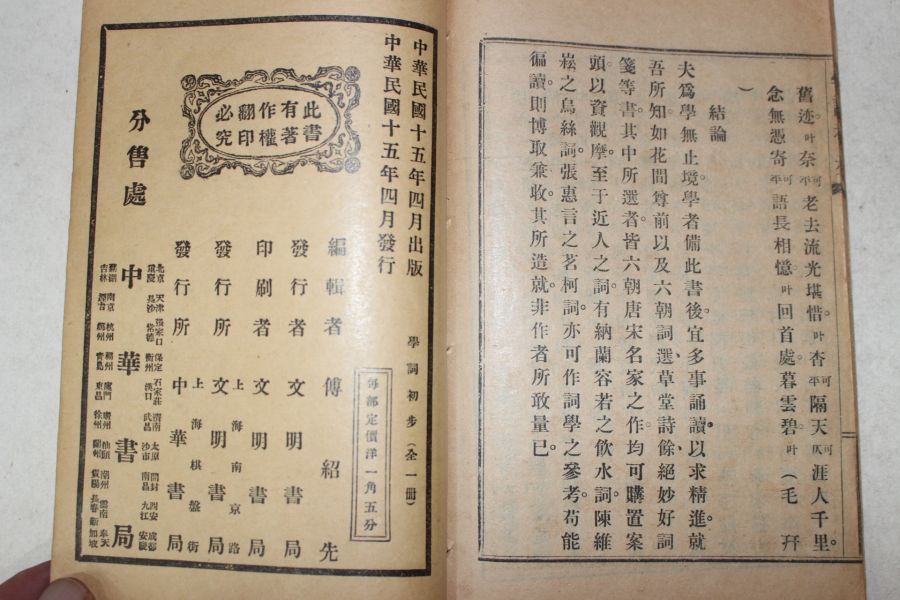 舊迹。叶奈可平老去流光堪惜。叶杏可平隔天可仄涯人千里。
念無憑寄可平語長相憶。叶回首處。暮雲碧。叶（毛幵
）
結論
夫爲學無止境。學者備此書後。宜多事誦讀。以求精進。就
吾所知。如花間尊前以及六朝詞選、草堂詩餘、絕妙好詞
箋等書。其中所選者。皆六朝唐宋名家之作。均可購置案
頭。以資觀摩。至于近人之詞。有納蘭容若之飲水詞。陳維
崧之烏絲詞。張惠言之茗柯詞。亦可作詞學之參考。苟能
徧讀。則博取兼收。其所造就。非作者所敢量已。
中華民國十五年四月出版
中華民國十五年四月發行
此書
有著
作權
翻印
必究
學詞初步（全一冊）
每部定價洋一角五分
編輯者 傅紹先
發行者 文明書局
印刷者 文明書局
發行所 上海南京路 文明書局
發行所 上海棋盤街 中華書局
分售處
中華書局
北京 天津 張家口 保定 石家莊 濟南 太原 開封 西安 成都
重慶 長沙 常德 衡州 漢口 武昌 沙市 南昌 九江 安慶
蕪湖 南京 杭州 福州 廈門 廣州 汕頭 潮州 雲南 奉天
吉林 煙台 青島 東昌 徐州 蘭州 貴陽 長春 新加坡